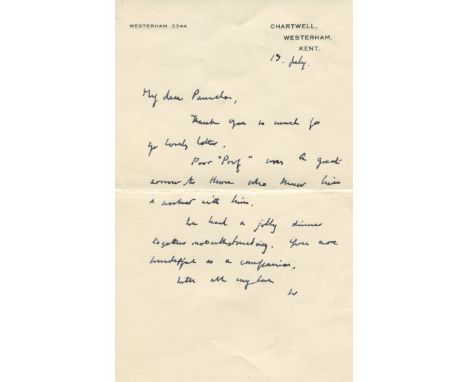 WESTERHAM 3344
CHARTWELL,
WESTERHAM,
KENT.
13. July.
My dear Pamela,
Thank you so much for
yr lovely letter.
Poor "Prof" was a great
sorrow to those who knew him
& worked with him.
We had a jolly dinner
together notwithstanding. You are
wonderful as a companion.
With all my love
W